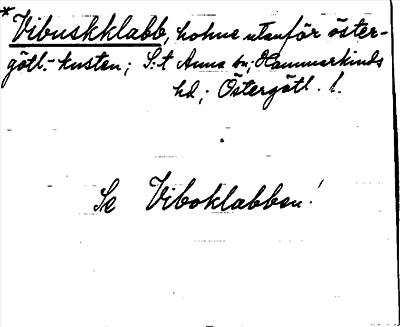 *Vibuskklabb, holme utanför öster-
götl.-kusten; S:t Anna sn; Hammarkinds
hd; Östergötl. l.
Se Viboklabben!